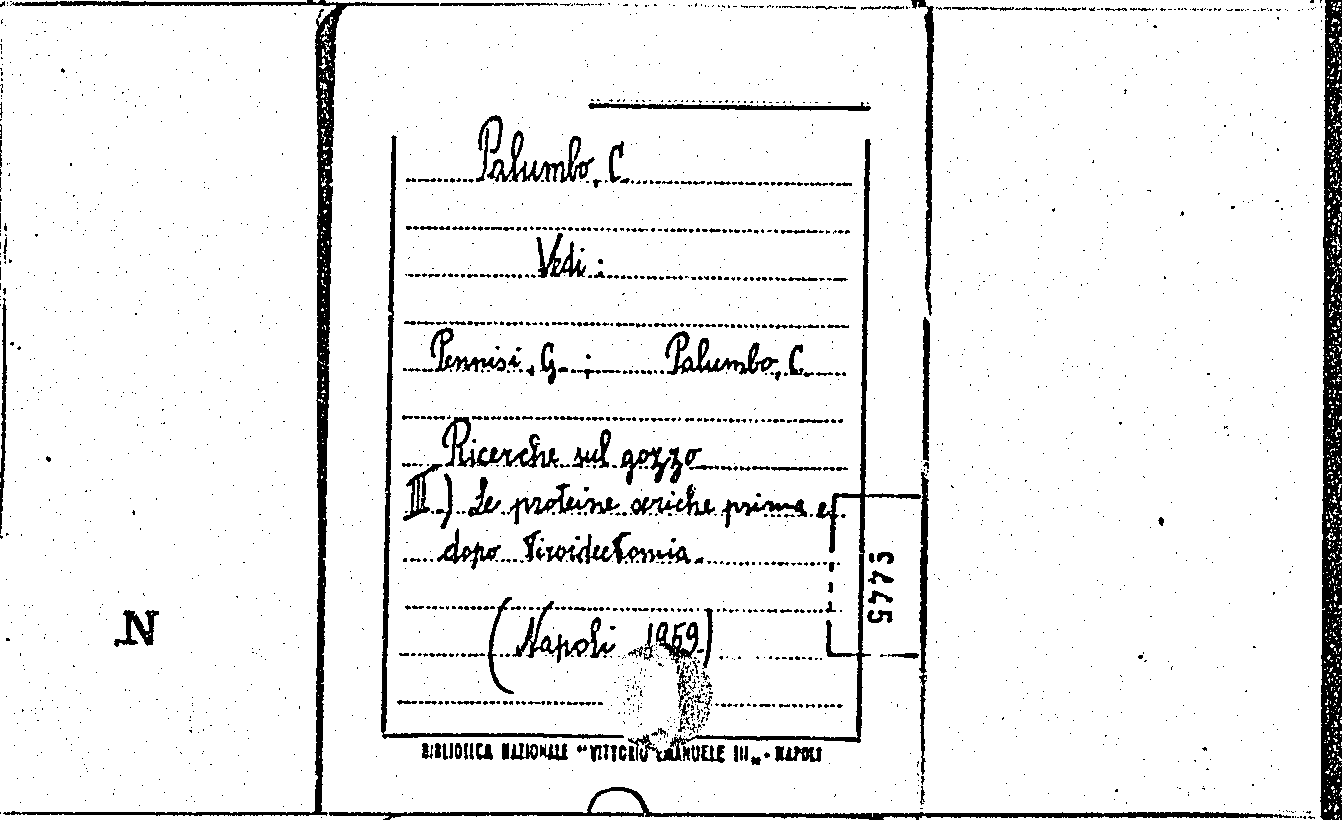 Palumbo, C.
Vedi :
Pennisi, G. ; Palumbo, C.
Ricerche sul gozzo
III) Le proteine seriche prima e
dopo tiroidectomia.
(Napoli 1959)
BIBLIOTECA NAZIONALE "VITTORIO EMANUELE III„ - NAPOLI
N